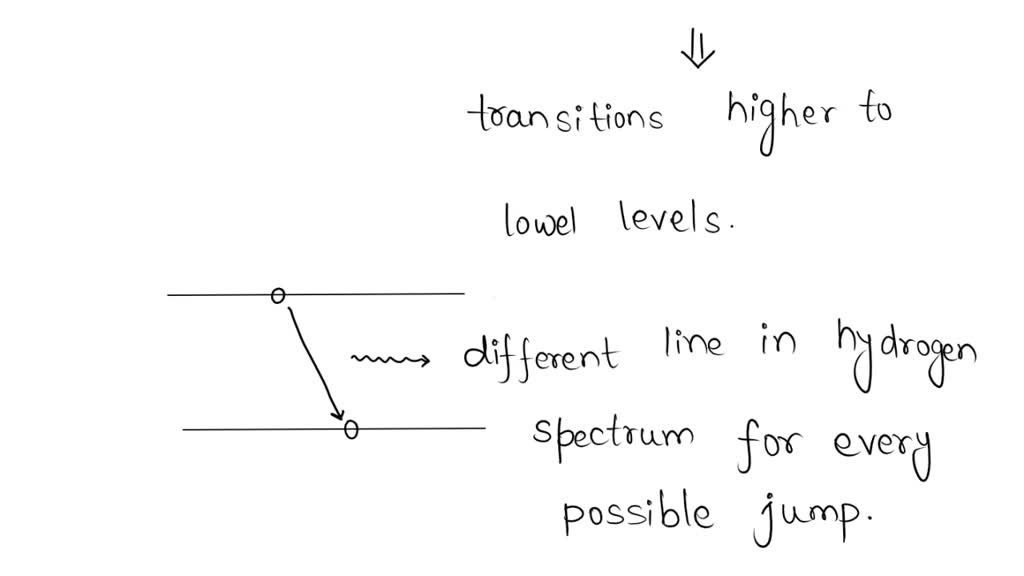 ⇓
transitions higher to
lowel levels.
different line in hydrogen
spectrum for every
possible jump.